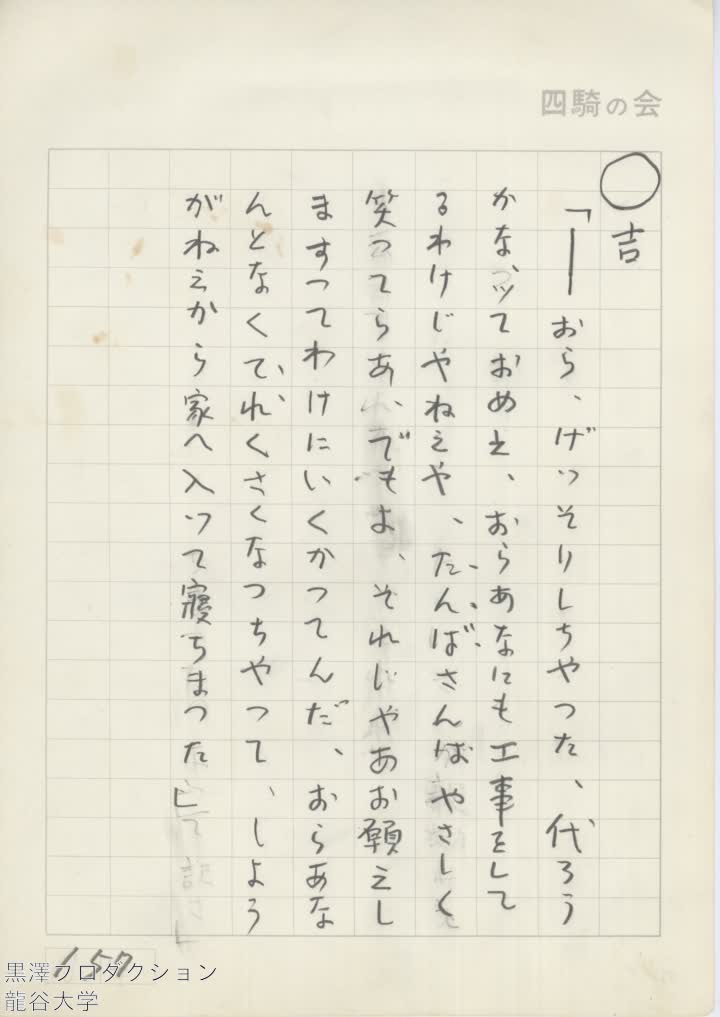 四騎の会
○
吉
「――おら、げっそりしちやつた、代ろう
かな、ッておめえ、おらあなにも工事をして
るわけじやねえや、たんばさんはやさしく
笑つてらあ、でもよ、それじやあお願えし
ますつてわけにいくかつてんだ、おらあな
んとなくてれくさくなつちやつて、しよう
がねえから家へ入つて寝ちまつた」
157
黒澤プロダクション
龍谷大学